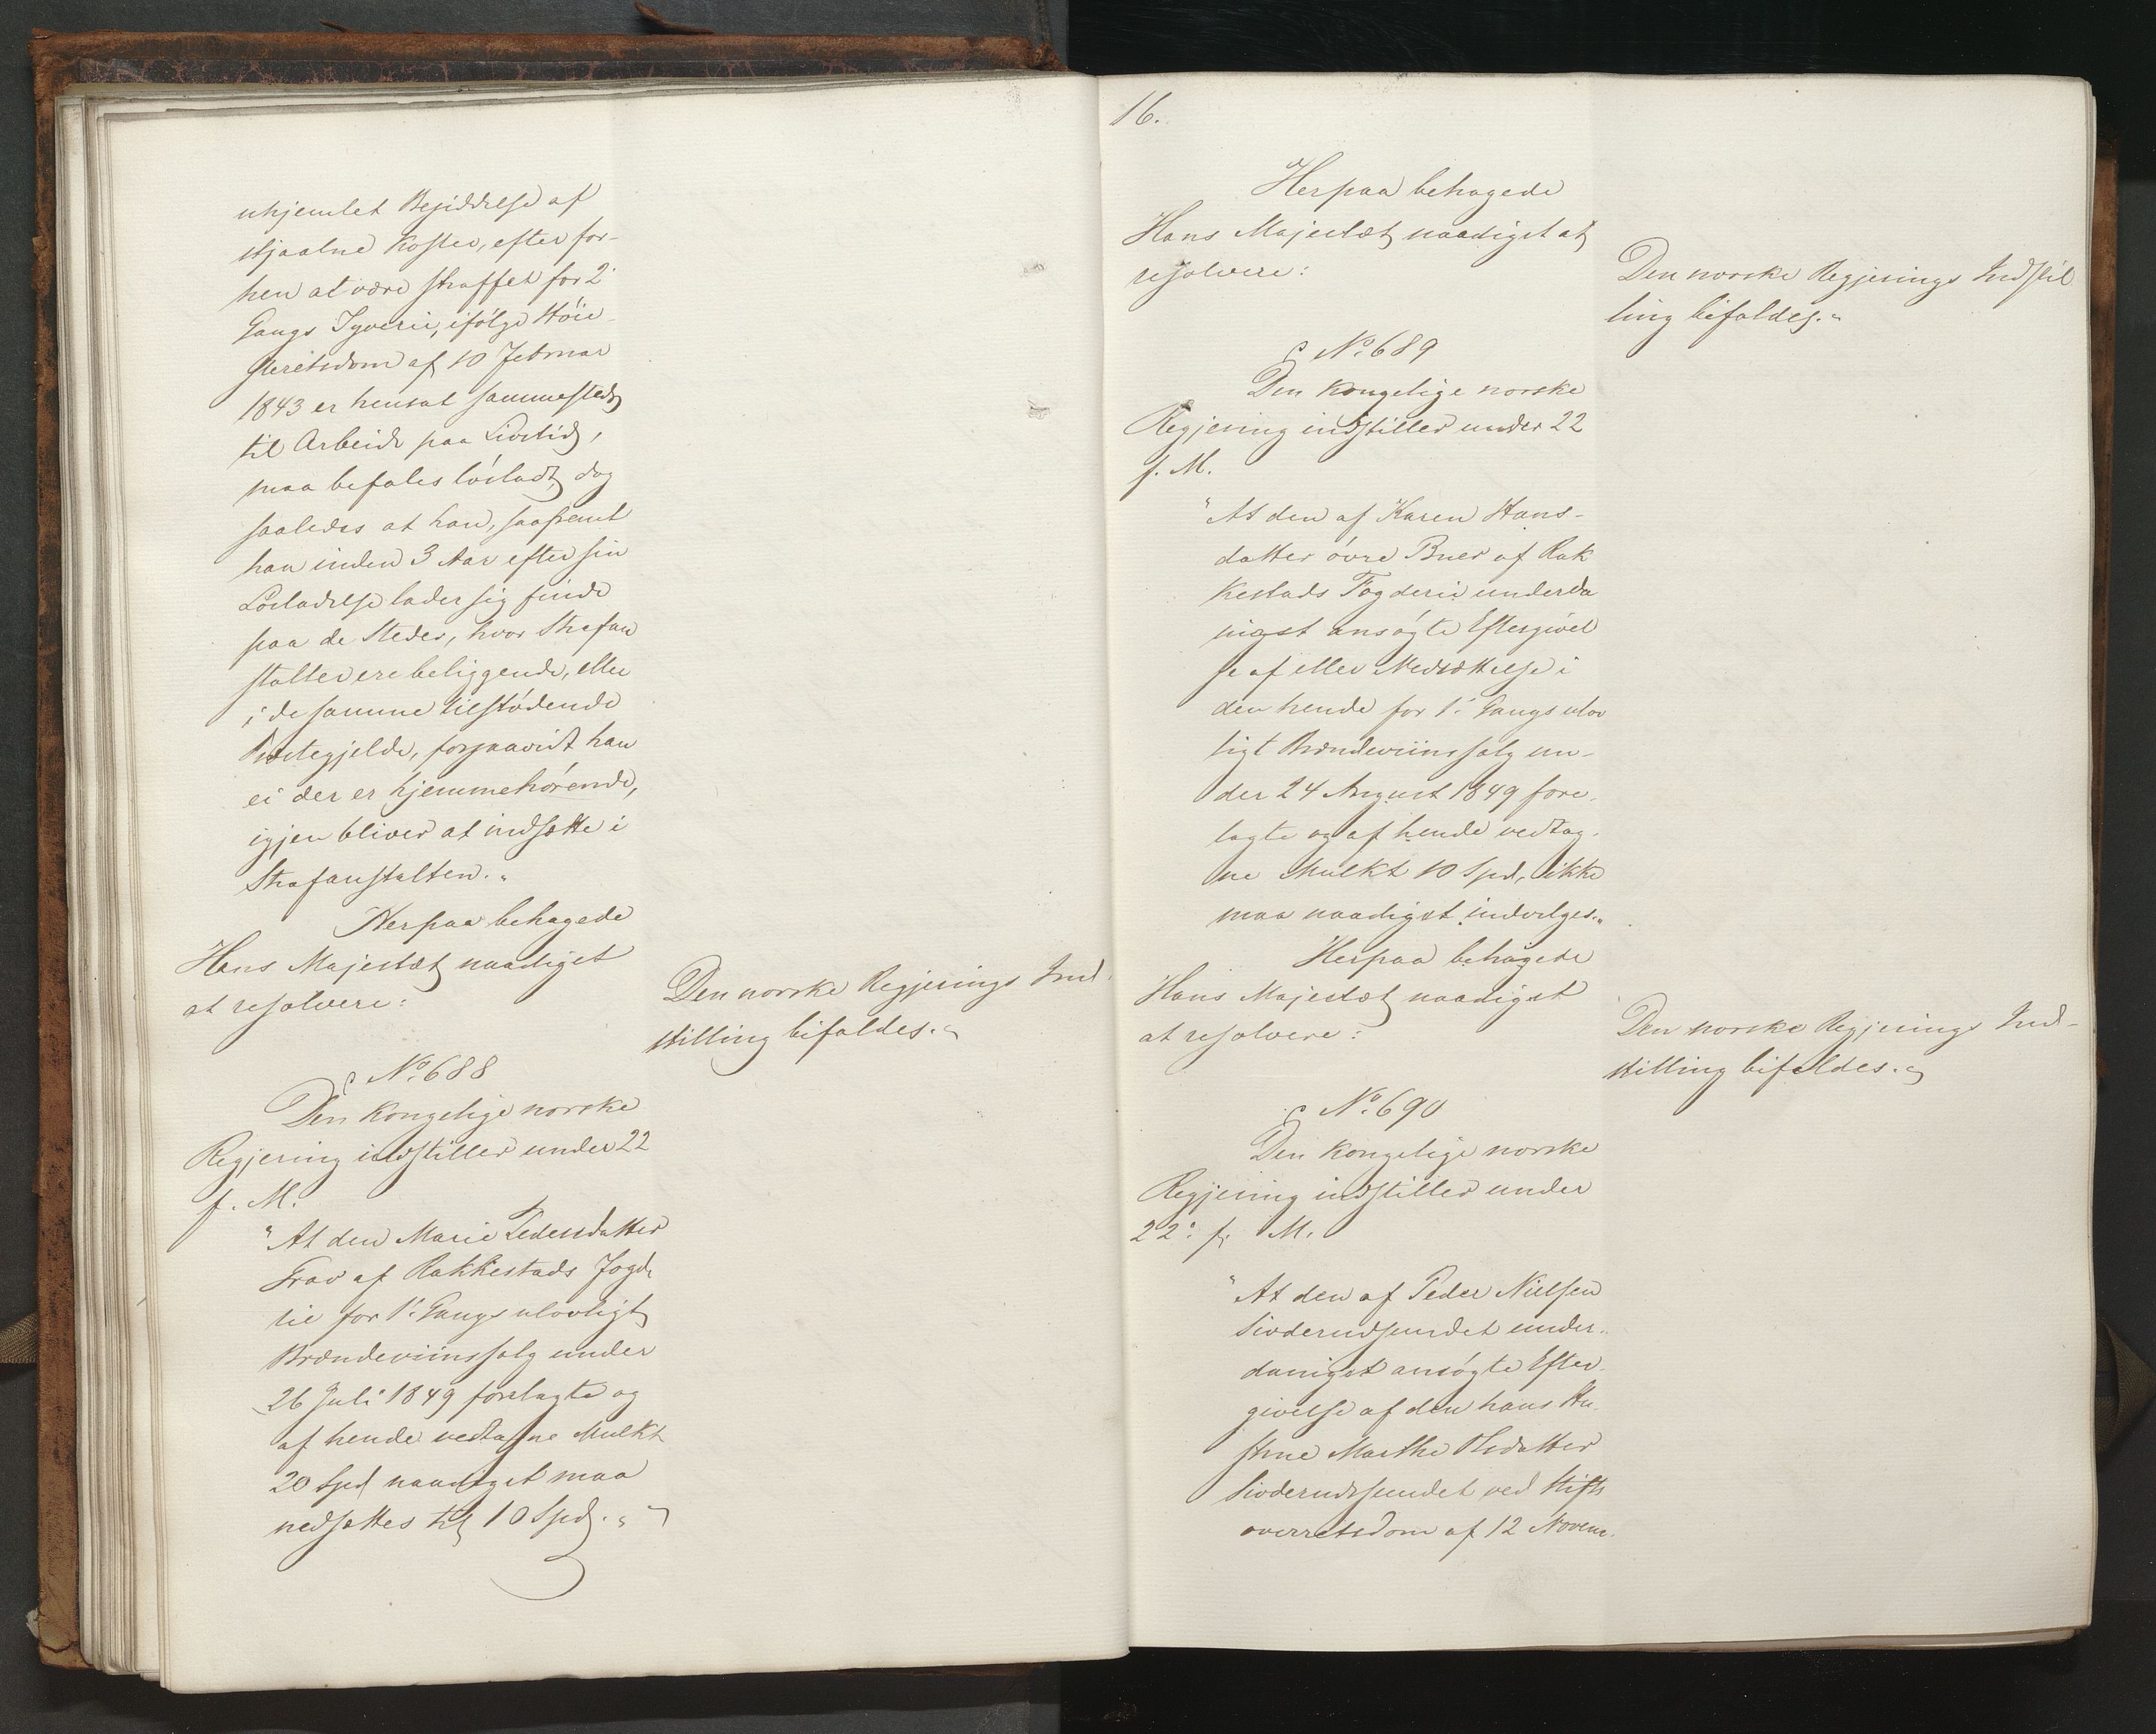 uhjemlet Besiddelse af
stjaalne Koster, efter for-
hen at være straffet for 2'
Gangs Tyverie, ifølge Høie-
steretsdom af 10 Februar
1843 er hensat sammesteds
til Arbeide paa Livstid,
maa befales løsladt, dog
saaledes at han, saafremt
han inden 3 Aar efter sin
Løsladelse lader sig finde
paa de Steder, hvor Strafan
stalter ere beliggende, eller
i de samme tilstødende
Præstegjelde, forsaavidt han
ei der er hjemmehørende,
igjen bliver at indsætte i
Strafanstalten."
Herpaa behagede
Hans Majestæt naadigst
at resolvere:
Den norske Regjerings Ind-
stilling bifaldes."
No. 688
Den Kongelige norske
Regjering indstiller under 22
f. M.
"At den Marie Pedersdatter
Trav af Rakkestads Fogde
rie for 1ste Gangs ulovligt
Brændeviinssalg under
26 Juli 1849 forelagte og
af hende vedtagne Mulkt
20 Spd naadigst maa
nedsættes til 10 Spd."
16.
Herpaa behagede
Hans Majestæt naadigst at
resolvere:
Den norske Regjerings Indstil
ling bifaldes."
No. 689
Den Kongelige norske
Regjering indstiller under 22
f. M.
"At den af Karen Hans-
datter øvre Buer af Rak
kestads Fogderie underda
nigst ansøgte Eftergivel
se af eller Nedsættelse i
den hende for 1' Gangs ulov
ligt Brændeviinssalg un-
der 24 August 1849 fore-
lagte og af hende vedtag-
ne Mulkt 10 Spd, ikke
maa naadigst indvilges."
Herpaa behagede
Hans Majestæt naadigst
at resolvere:
Den norske Regjerings Ind-
stilling bifaldes."
No. 690
Den Kongelige norske
Regjering indstiller under
22' f. M.
"At den af Peder Nielsen
Sioderudsundet under-
danigst ansøgte Efter-
givelse af den hans Hu-
strue Marthe Olsdatter
Sioderudssundet ved Stifts
overretsdom af 12 Novem-